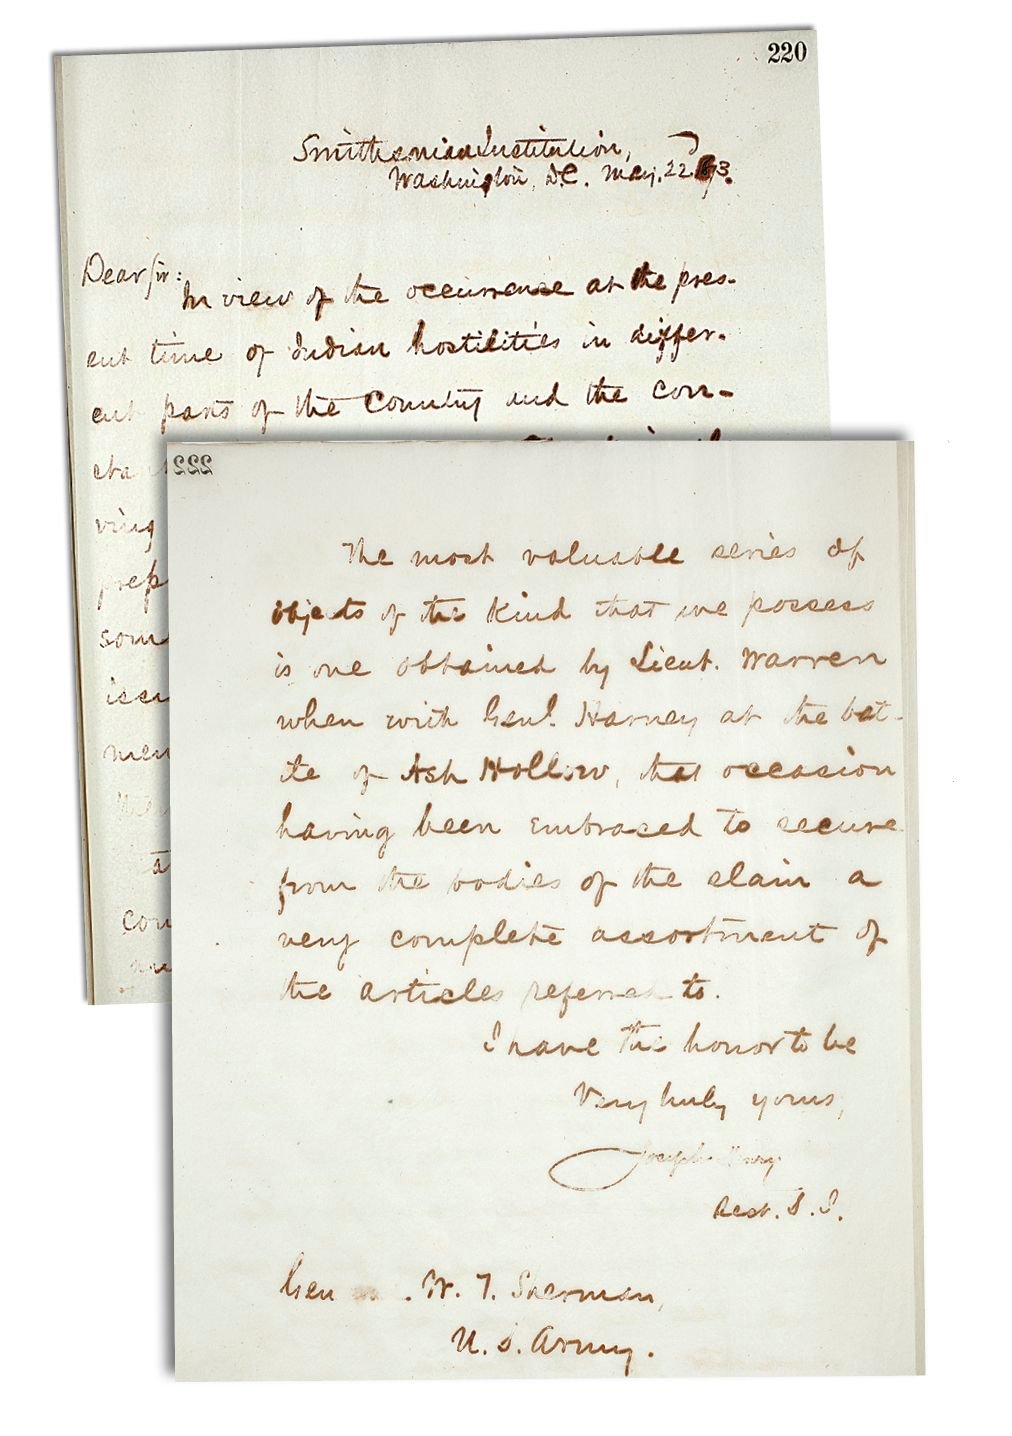 220
Smithsonian Institution,
Washington, D.C. May. 22d 73.
Dear Sir:
In view of the occurrence at the pres-
ent time of Indian hostilities in differ-
ent parts of the Country and the con-
sta
ving
prep
som
issu
men
con
222
The most valuable series of
objects of this kind that we possess
is one obtained by Lieut. Warren
when with Genl. Harney at the bat-
tle of Ash Hollow, that occasion
having been embraced to secure
from the bodies of the slain a
very complete assortment of
the articles referred to.
I have the honor to be
Very truly yours,
Joseph Henry
Sect. S. I.
Gen . W. T. Sherman,
U. S. Army.